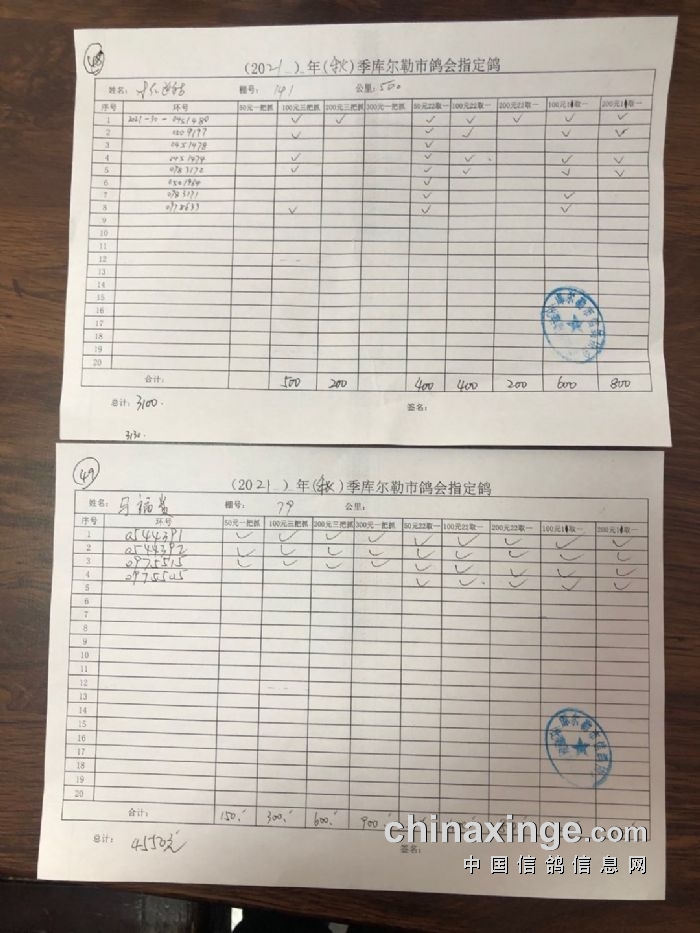 48
(2021)年(秋)季库尔勒市鸽会指定鸽
姓名: 棚号: 141 公里: 500
序号 环号 50元一把抓 100元三把抓 200元三把抓 300元一把抓 50元22取一 100元22取一 200元22取一 100元1取一 200元1取一
1 2021-30-0451480 ✓ ✓ ✓ ✓ ✓ ✓ ✓
2 0009197 ✓ ✓ ✓ ✓ ✓
3 0451478 ✓
4 0451474 ✓ ✓ ✓ ✓ ✓
5 0983172 ✓ ✓ ✓ ✓ ✓
6 ✓
7 0983171 ✓ ✓
8 0978633 ✓ ✓ ✓
9
10
11
12
13
14
15
16
17
18
19
20
合计: 500 200 400 400 200 600 800
总计: 3100. 签名:
3130.
49
(2021)年(秋)季库尔勒市鸽会指定鸽
姓名: 马福贵 棚号: 79 公里:
序号 环号 50元一把抓 100元三把抓 200元三把抓 300元一把抓 50元22取一 100元22取一 200元22取一 100元1取一 200元1取一
1 0544391 ✓ ✓ ✓ ✓ ✓ ✓ ✓ ✓ ✓
2 0544392 ✓ ✓ ✓ ✓ ✓ ✓ ✓ ✓ ✓
3 0975515 ✓ ✓ ✓ ✓ ✓ ✓ ✓ ✓ ✓
4 0975505 ✓ ✓ ✓ ✓ ✓
5
6
7
8
9
10
11
12
13
14
15
16
17
18
19
20
合计: 150. 300. 600. 900.
总计: 4550元 签名:
chinaxinge.com
中国信鸽信息网